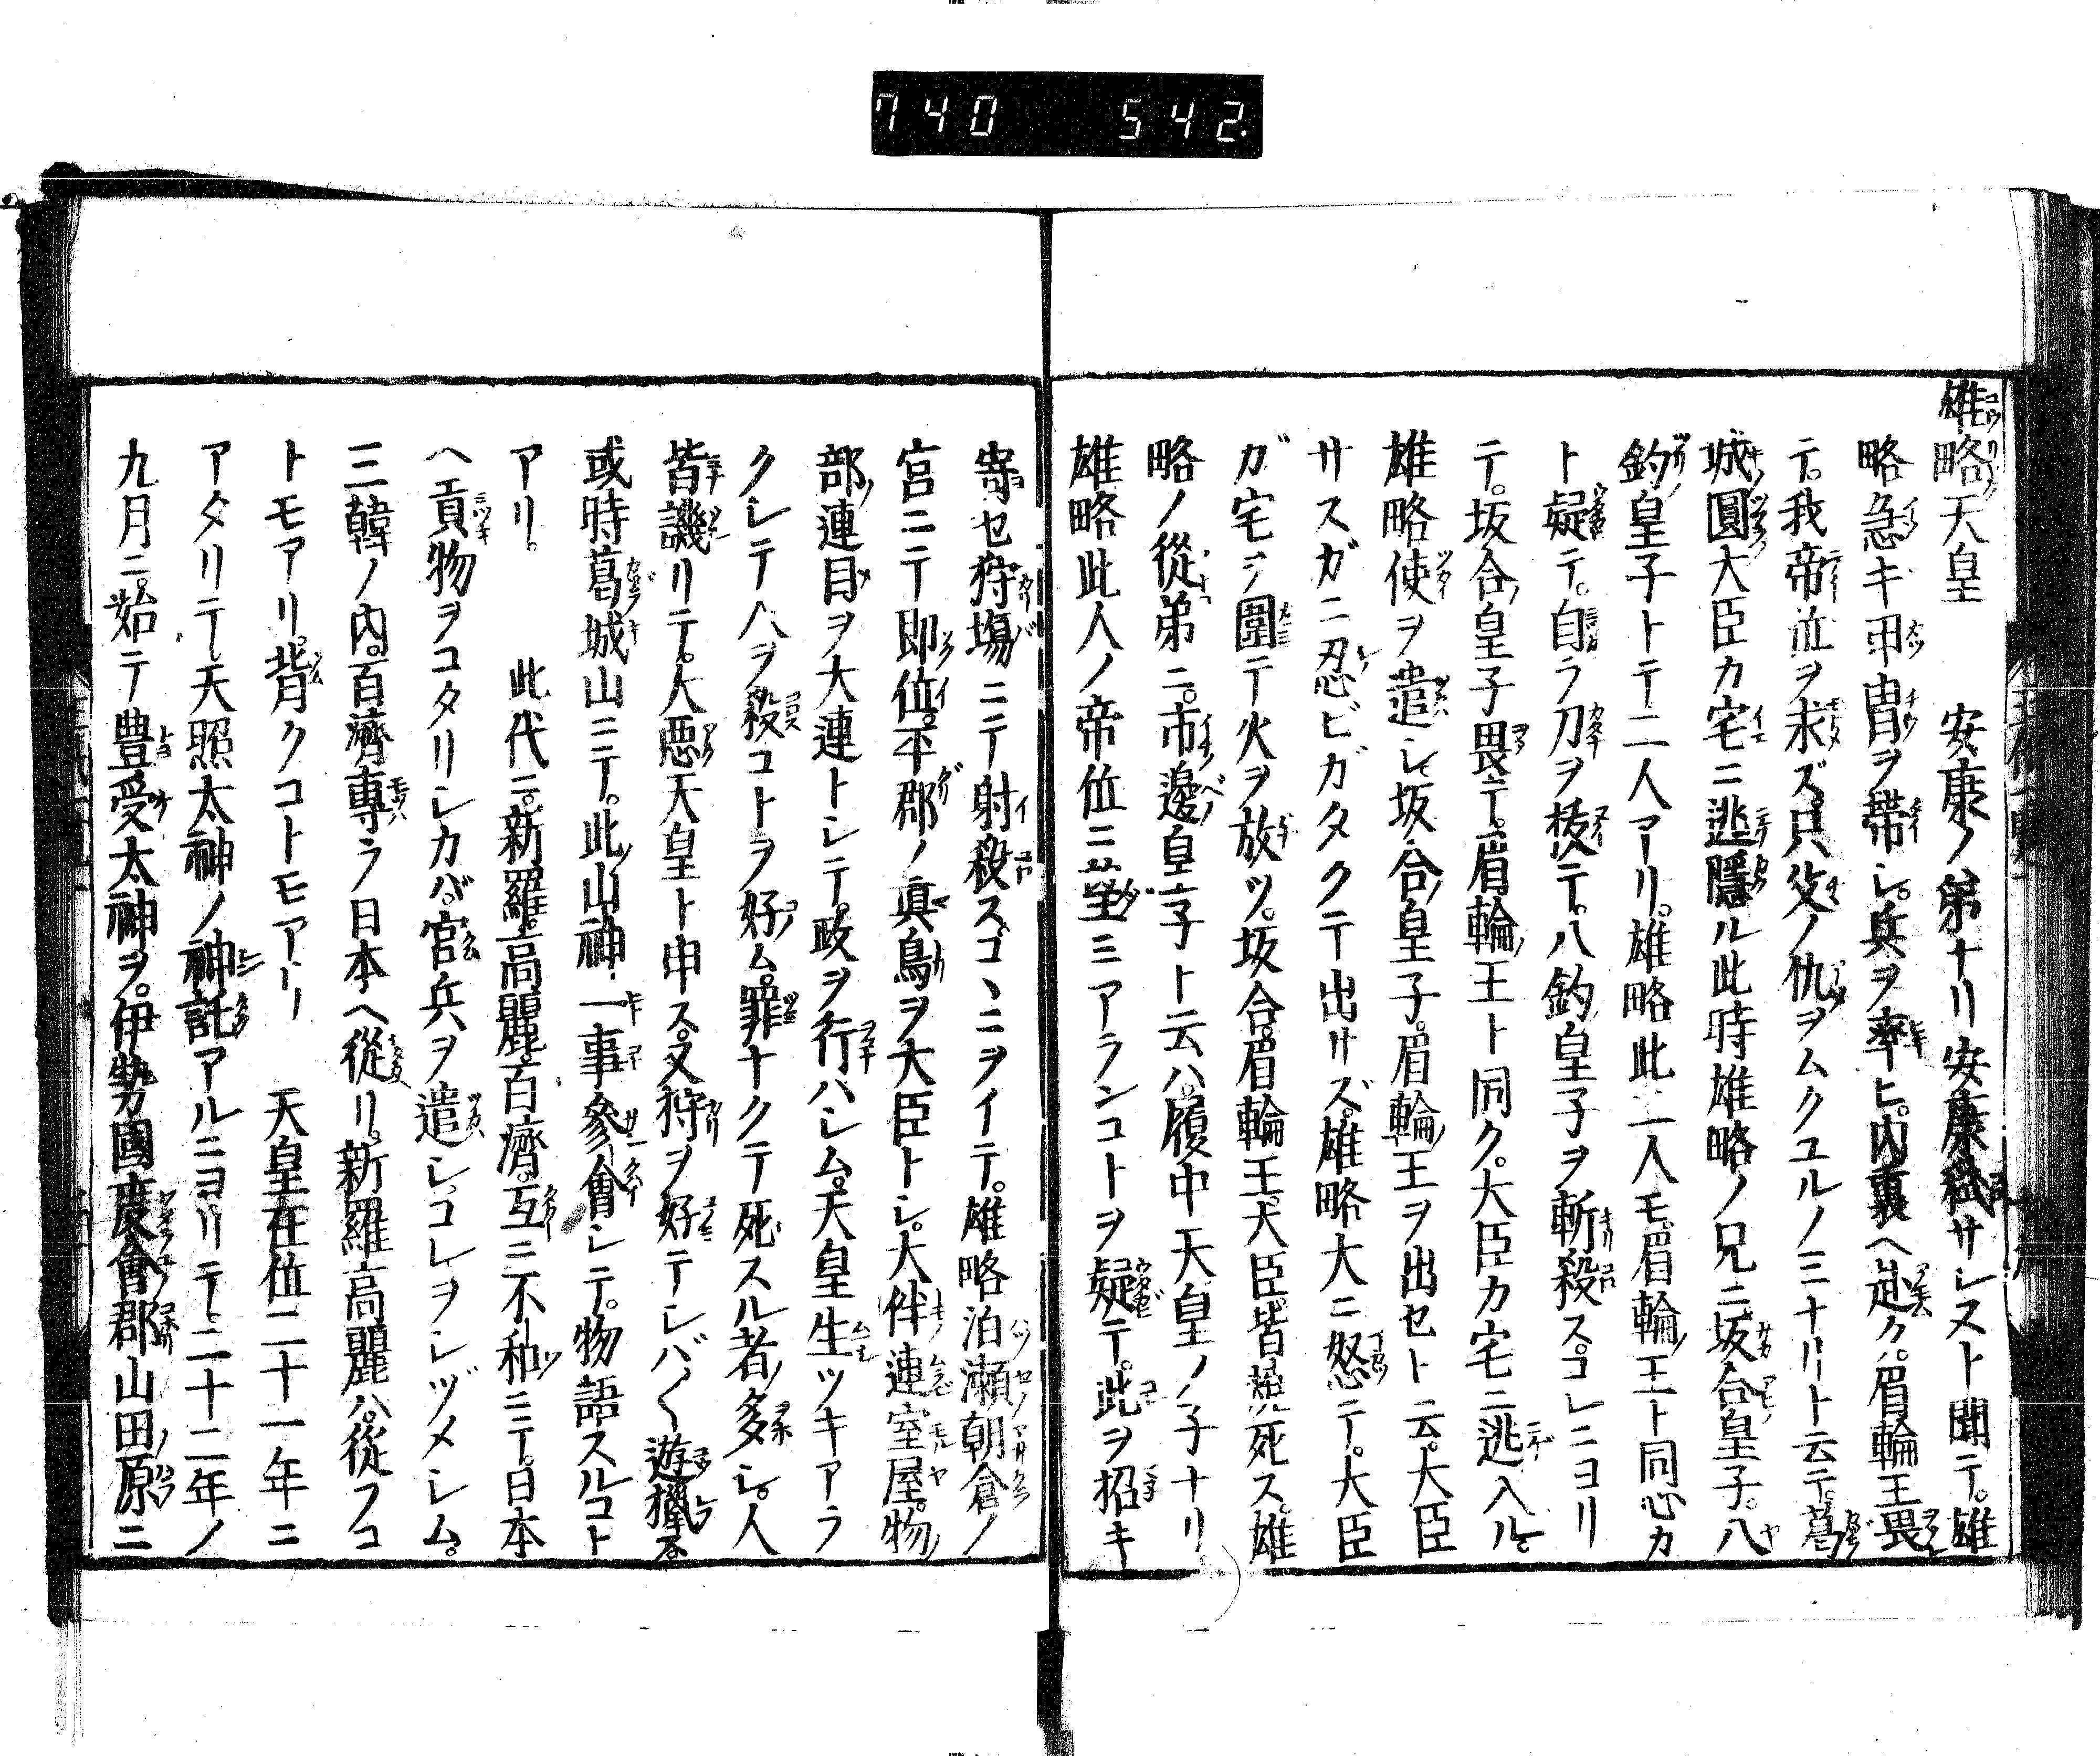 740 542
雄略天皇 安康ノ弟ナリ安康弑サレヌト聞テ。雄
略急キ甲冑ヲ帶シ。兵ヲ率ヒ。内裏ヘ赴ク。眉輪王畏
テ。我帝位ヲ求ズ只父ノ仇ヲムクユルノミナリト云テ。葛
城圓大臣カ宅ニ逃隱ル此時雄略ノ兄ニ坂合皇子。八
釣皇子トテ二人アリ。雄略此二人モ。眉輪王ト同心カ
ト疑テ。自ラ刀ヲ拔テ。八釣皇子ヲ斬殺ス。コレニヨリ
テ。坂合皇子畏テ。眉輪王ト同ク。大臣カ宅ニ逃入ル。
雄略使ヲ遣シ。坂合皇子。眉輪王ヲ出セト云。大臣
サスガニ忍ビガタクテ出サズ。雄略大ニ怒テ。大臣
ガ宅ヲ圍テ火ヲ放ツ。坂合。眉輪王。大臣皆燒死ス。雄
略ノ從弟ニ。市邊皇子ト云ハ。履中天皇ノ子ナリ。
雄略此人ノ帝位ニ望ミアランコトヲ疑テ。此ヲ招キ
寄セ狩場ニテ射殺ス。コヽニヲイテ。雄略泊瀬朝倉ノ
宮ニテ即位。平郡ノ眞鳥ヲ大臣トシ。大伴連室屋。物
部連目ヲ大連トシテ。政ヲ行ハシム。天皇生ツキアラ
クシテ人ヲ殺コトヲ好ム。罪ナクテ死スル者多シ。人
皆譏リテ。大惡天皇ト申ス。又狩ヲ好テシバ〱遊獵ス。
或時葛城山ニテ。此山神一事參會シテ。物語スルコト
アリ。 此代ニ。新羅。高麗。百濟。互ニ不和ニテ。日本
ヘ貢物ヲコタリシカバ。官兵ヲ遣シ。コレヲシヅメシム。
三韓ノ內。百濟專ラ日本ヘ從リ。新羅高麗ハ。從フコ
トモアリ。背クコトモアリ 天皇在位二十一年ニ
アタリテ。天照太神ノ神託アルニヨリテ。二十二年ノ
九月ニ。始テ豊受太神ヲ。伊勢國度會郡山田原ニ